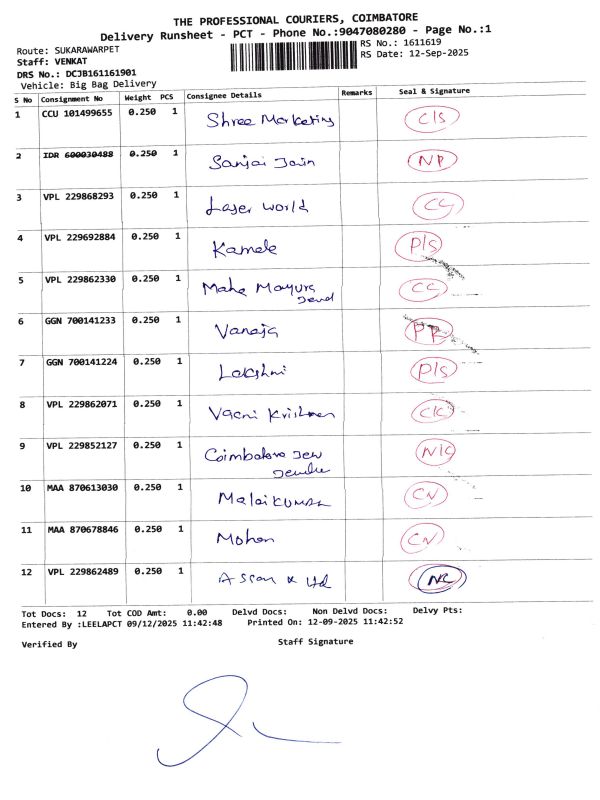 THE PROFESSIONAL COURIERS, COIMBATORE
Delivery Runsheet - PCT - Phone No.:9047080280 - Page No.:1
Route: SUKARAWARPET
RS No.: 1611619
Staff: VENKAT
RS Date: 12-Sep-2025
DRS No.: DCJB161161901
Vehicle: Big Bag Delivery
S No Consignment No Weight PCS Consignee Details Remarks Seal & Signature
1 CCU 101499655 0.250 1 Shree Marketing C/S
2 IDR 600030488 0.250 1 Sanjai Jain NP
3 VPL 229868293 0.250 1 Laser World CC
4 VPL 229692884 0.250 1 Kamale P/S
5 VPL 229862330 0.250 1 Maha Mayura CC
6 GGN 700141233 0.250 1 Vanaja PR
7 GGN 700141224 0.250 1 Lakshmi P/S
8 VPL 229862071 0.250 1 Krishnan
9 VPL 229852127 0.250 1 Coimbatore Jew N/C
10 MAA 870613030 0.250 1 Malaikumar CN
11 MAA 870678846 0.250 1 Mohan CN
12 VPL 229862489 0.250 1 NC
Tot Docs: 12 Tot COD Amt: 0.00 Delvd Docs: Non Delvd Docs: Delvy Pts:
Entered By :LEELAPCT 09/12/2025 11:42:48 Printed On: 12-09-2025 11:42:52
Verified By Staff Signature